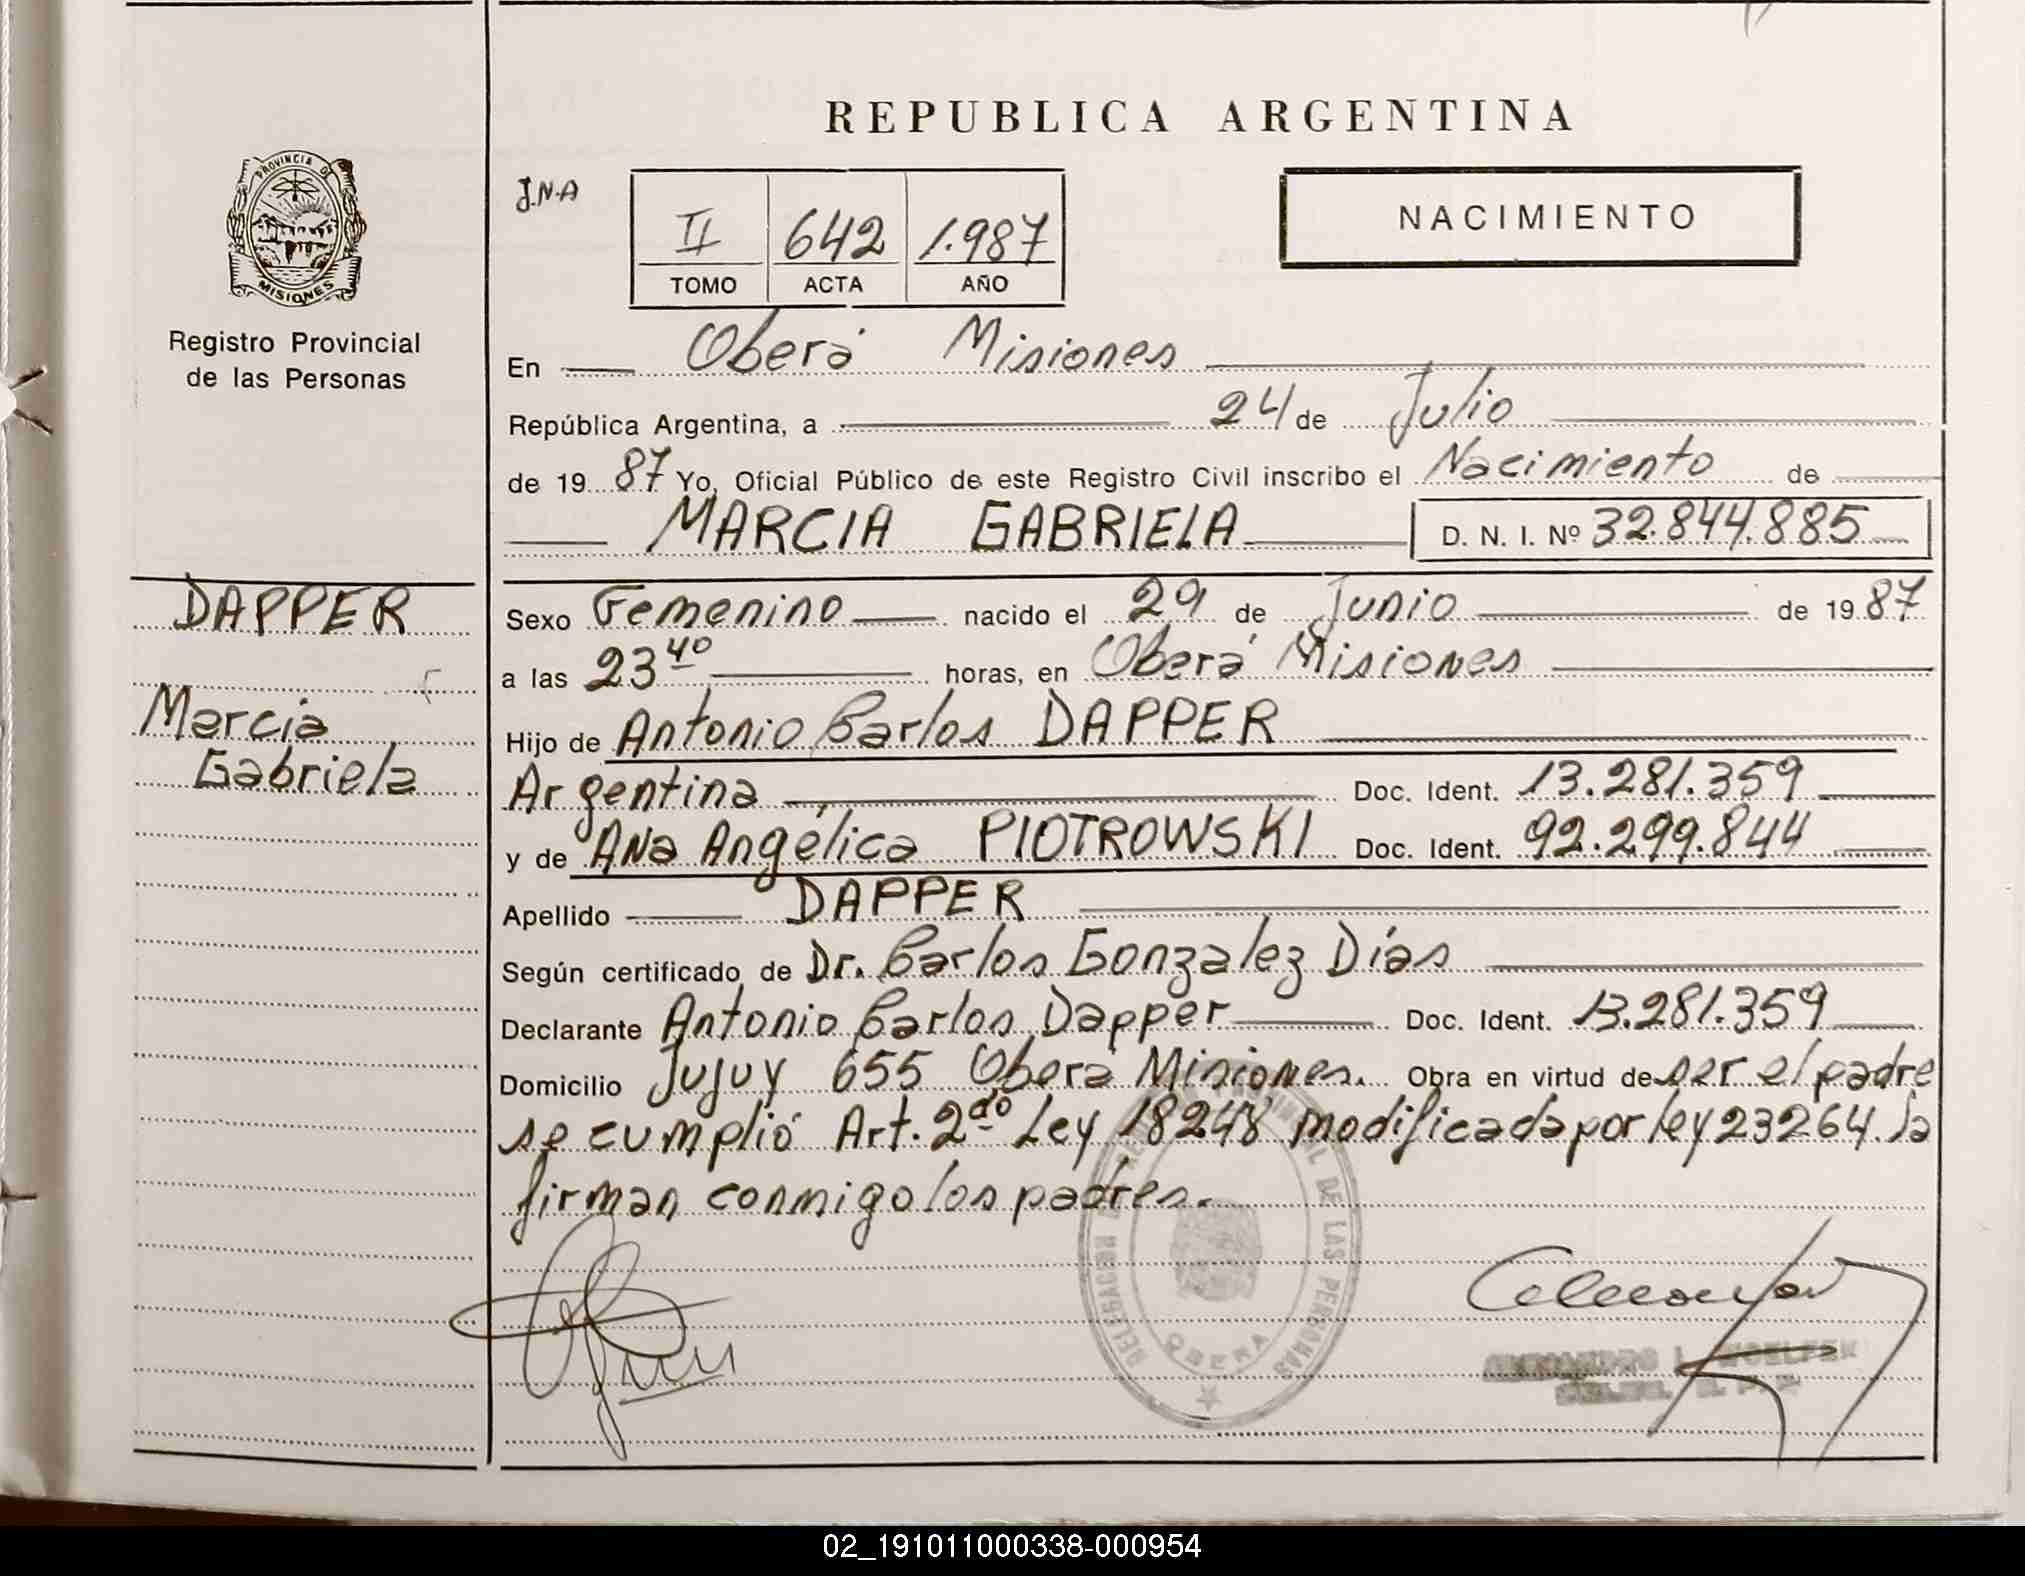 REPUBLICA ARGENTINA
PROVINCIA DE
MISIONES
Registro Provincial
de las Personas
J.N.A
II 642 1.987
TOMO ACTA AÑO
NACIMIENTO
En Oberá Misiones
República Argentina, a 24 de Julio
de 19 87 Yo, Oficial Público de este Registro Civil inscribo el Nacimiento de
MARCIA GABRIELA D. N. I. Nº 32.844.885
DAPPER
Marcia
Gabriela
Sexo Femenino nacido el 29 de Junio de 19 87
a las 23 40 horas, en Oberá Misiones
Hijo de Antonio Carlos DAPPER
Argentina Doc. Ident. 13.281.359
y de Ana Angélica PIOTROWSKI Doc. Ident. 92.299.844
Apellido DAPPER
Según certificado de Dr. Carlos Gonzalez Días
Declarante Antonio Carlos Dapper Doc. Ident. 13.281.359
Domicilio Jujuy 655 Oberá Misiones. Obra en virtud de ser el padre
se cumplió Art. 2do Ley 18248 modificada por ley 23264. la
firman conmigo los padres.
DELEGACION DE LAS PERSONAS
OBERA
02_191011000338-000954